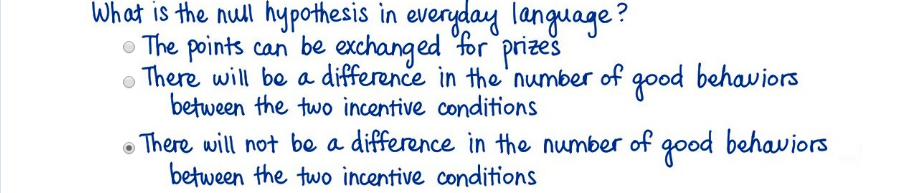 What is the null hypothesis in everyday language?
The points can be exchanged for prizes
There will be a difference in the number of good behaviors
between the two incentive conditions
There will not be a difference in the number of good behaviors
between the two incentive conditions